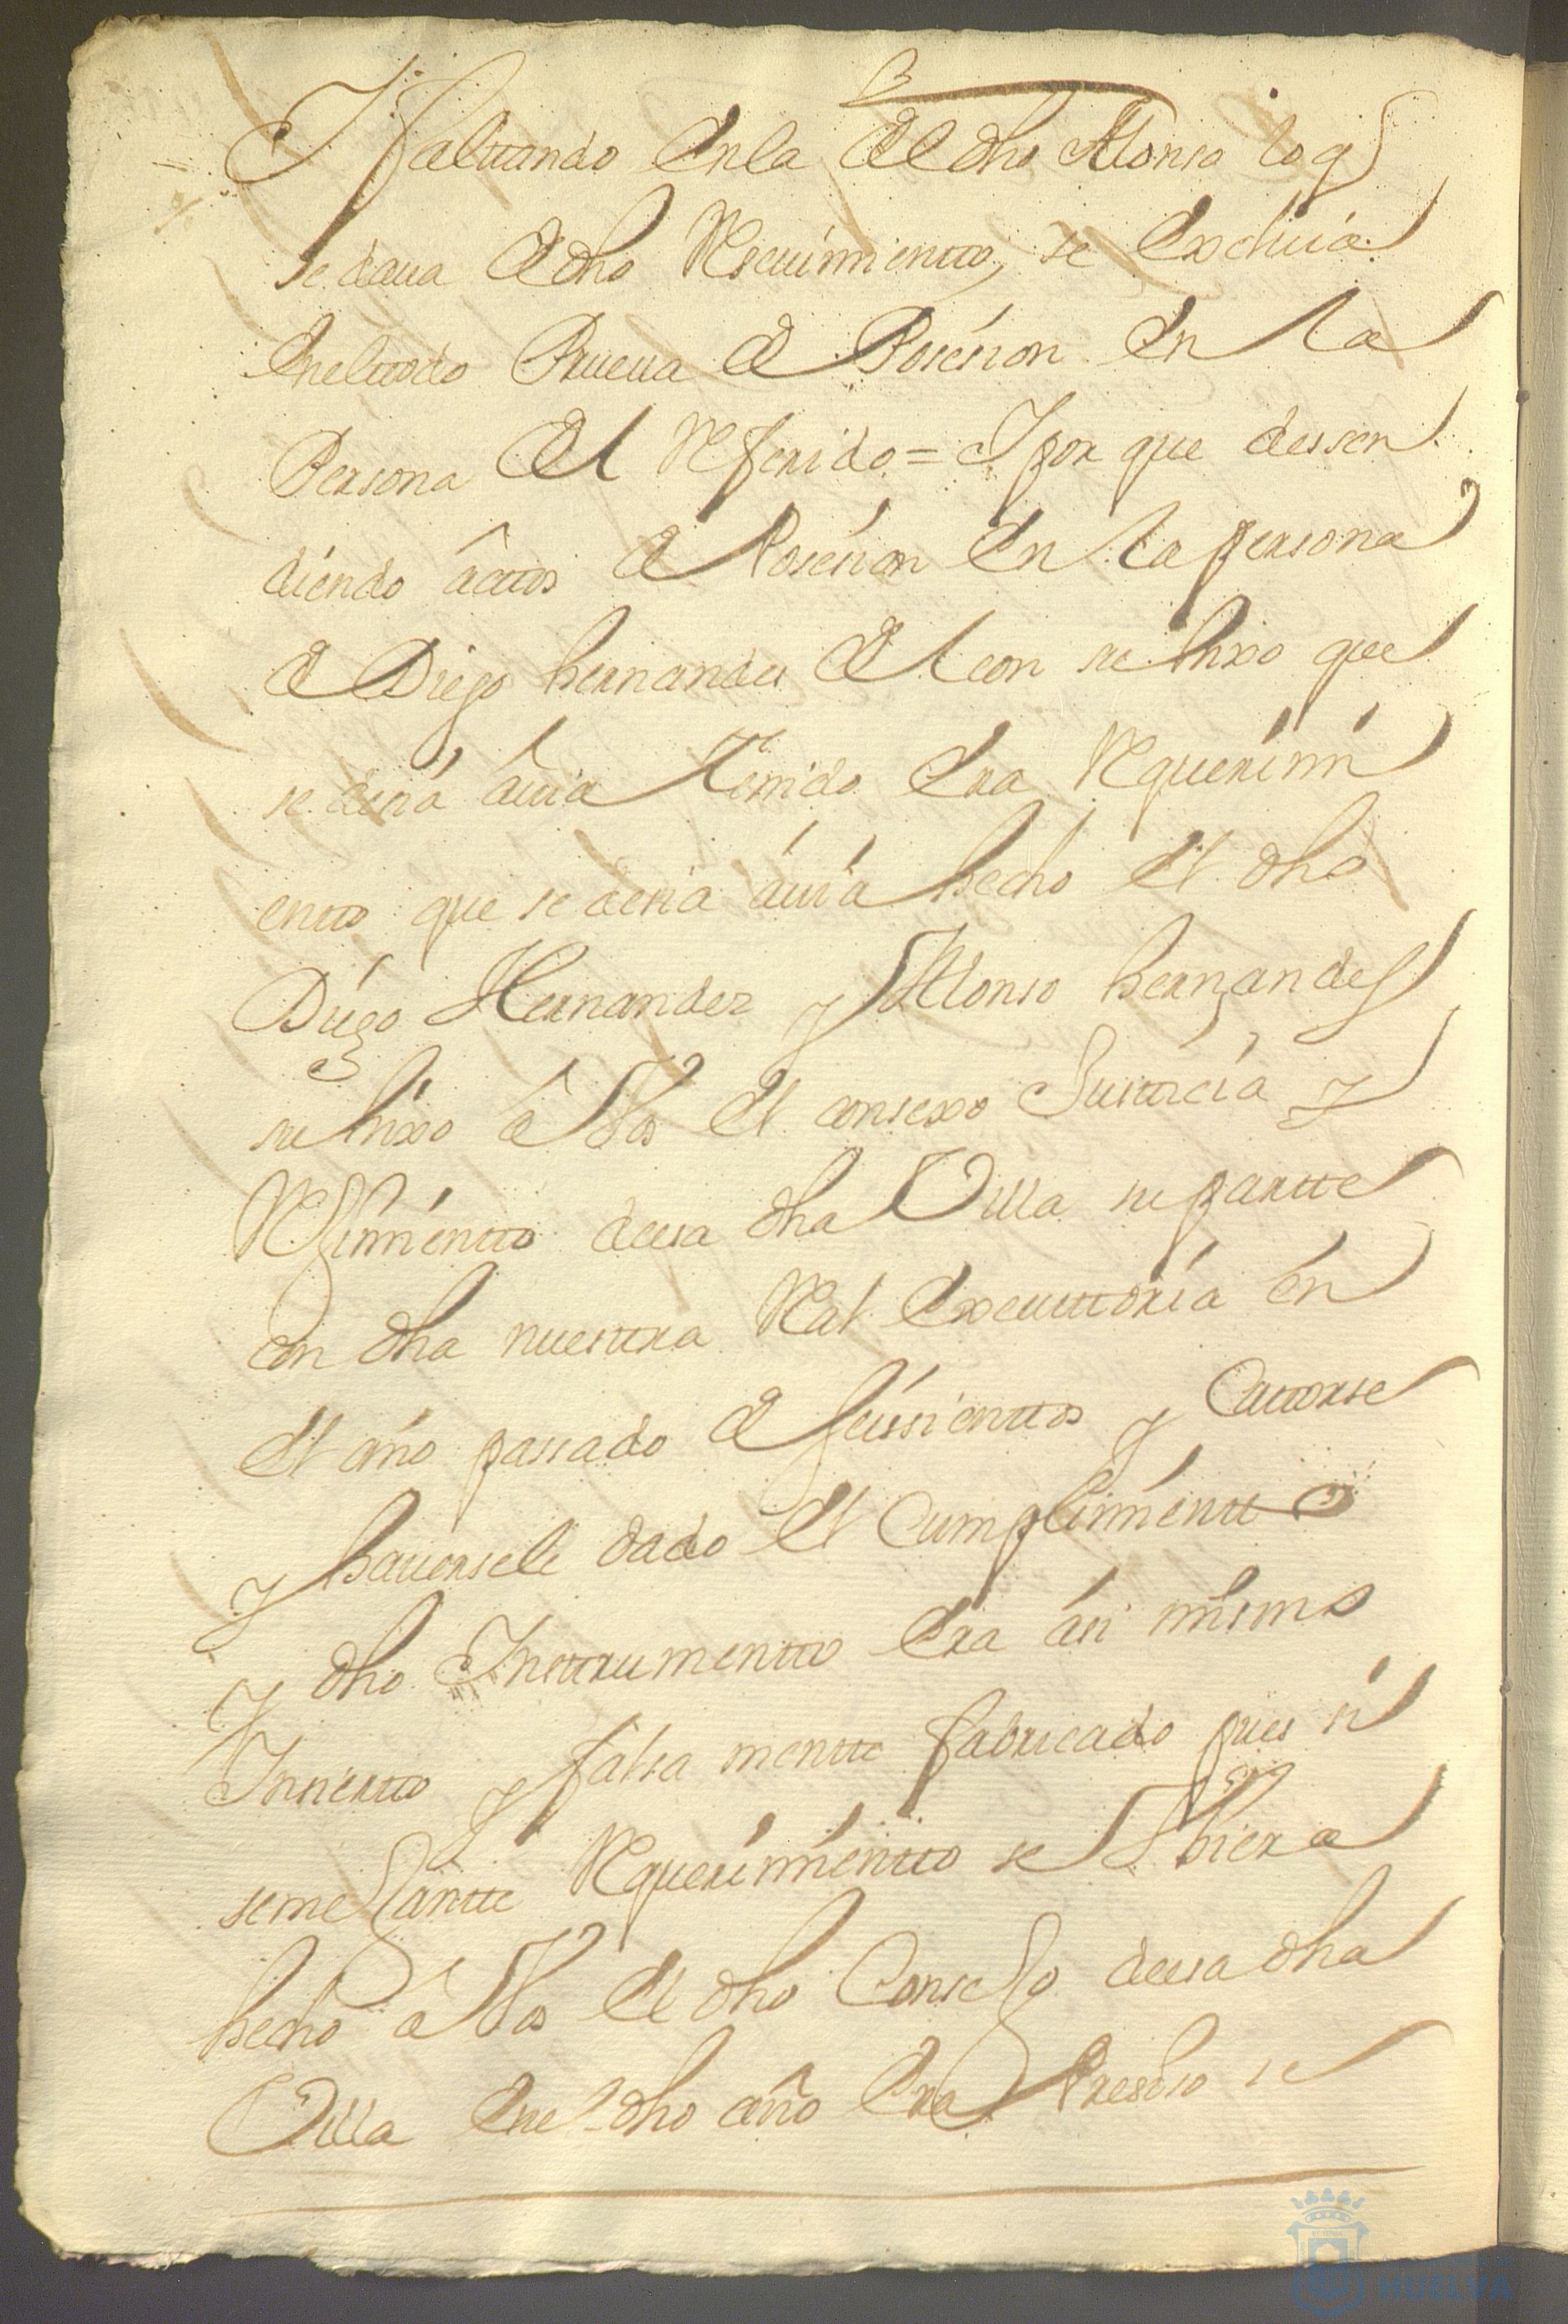 Y faltando En la Del dho Alonso loq
se daua Dedho Reseuimientto, se Excluia
Eneltodo Prueua De Posesion En la
Persona Del Referido = Y por que dessen
diendo âctos De Posesion En la persona
De Diego hernandes Del con su hixo que
se desia áuia Tenido Era Requerimi
entto que se desia áuia hecho El dho
Diego Hernandez y Alonso hernandes
su hixo â Vos El consexo Justicia y
Reximientto desa dha Villa su partte
con dha nuestra Real Executtoria én
El año passado De seissienttos y Cattorse
y hauersele dado El Cumplimientto
y dho Insttrumentto Era ási mismo
Insiertto y falsa mentte fabricado pues si
semejantte Requerimientto se Vbiera
hecho â Vos El dho Consejo desa dha
Villa Enel dho año Era Presiso se
HUELVA